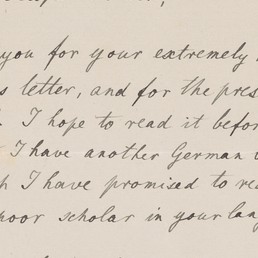 you for your extremely
s letter, and for the pres
I hope to read it befor
I have another German
h I have promised to re
poor scholar in your lang